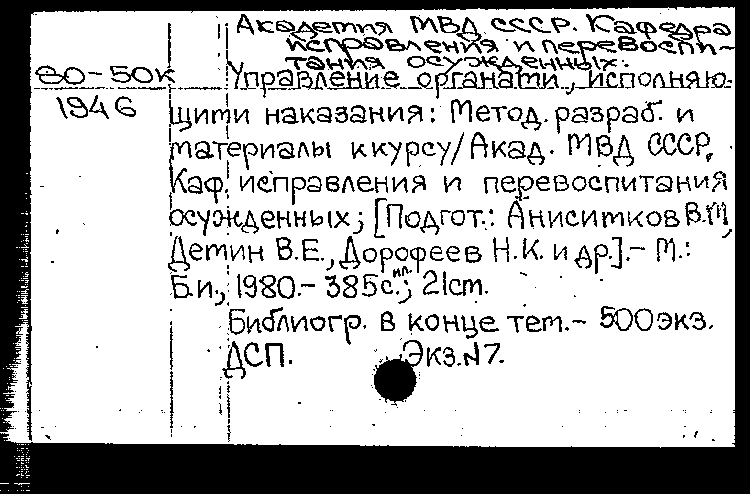 Академия МВД СССР. Кафедра
исправления и перевоспи-
тания осужденных.
80-50к
Управление органами, исполняю-
1946
щими наказания: Метод. разраб. и
материалы к курсу/Акад. МВД СССР,
Каф. исправления и перевоспитания
осужденных; [Подгот.: Анисимков В.М,
Демин В.Е., Дорофеев Н.К. и др.].- М.:
Б.и., 1980.- 385с. ил.; 21см.
Библиогр. в конце тем.- 500экз.
ДСП. Экз.N7.